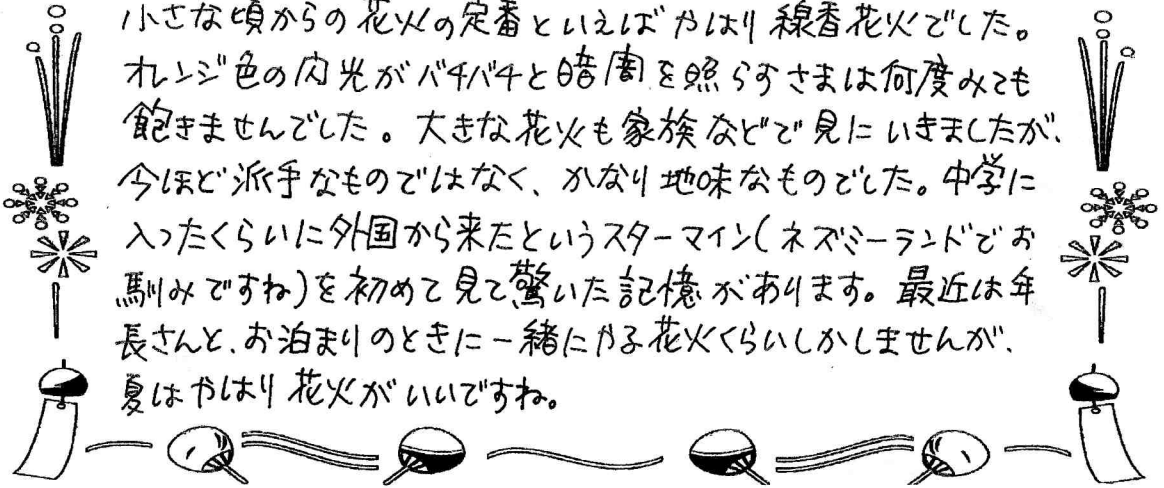 小さな頃からの花火の定番といえばやはり線香花火でした。
オレンジ色の閃光がバチバチと暗闇を照らすさまは何度みても
飽きませんでした。大きな花火も家族などで見にいきましたが、
今ほど派手なものではなく、かなり地味なものでした。中学に
入ったくらいに外国から来たというスターマイン(ネズミーランドでお
馴みですね)を初めて見て驚いた記憶があります。最近は年
長さんと、お泊まりのときに一緒にやる花火くらいしかしませんが、
夏はやはり花火がいいですね。